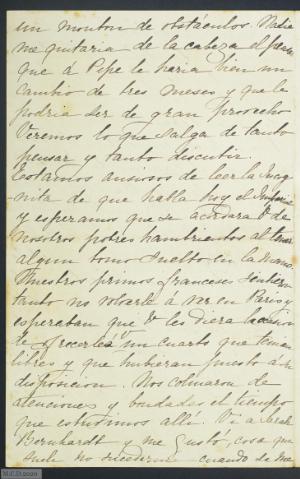 un monton de obstáculos. Nadie
me quitaria de la cabeza el pensar
que á Pepe le haria bien un
cambio de tres meses y que le
podria ser de gran provecho
Veremos lo que salga de tanto
pensar y tanto discutir.
Estamos ansiosos de leer la Incóg-
-nita de que habla hoy el
y esperamos que se acordará Vd de
nosotros pobres hambrientos al tener
algun tomo suelto en la mano.
Nuestros primos franceses sintieron
tanto no volverle á ver en Paris y
esperaban que Vd les diera la ocasion
de ofrecerle un cuarto que tenian
libre y que hubieran puesto á su
disposicion. Nos colmaron de
atenciones y bondades el tiempo
que estuvimos allí. Vi a Sarah
Bernhardt y me gustó, cosa que
suele no sucederme cuando se me